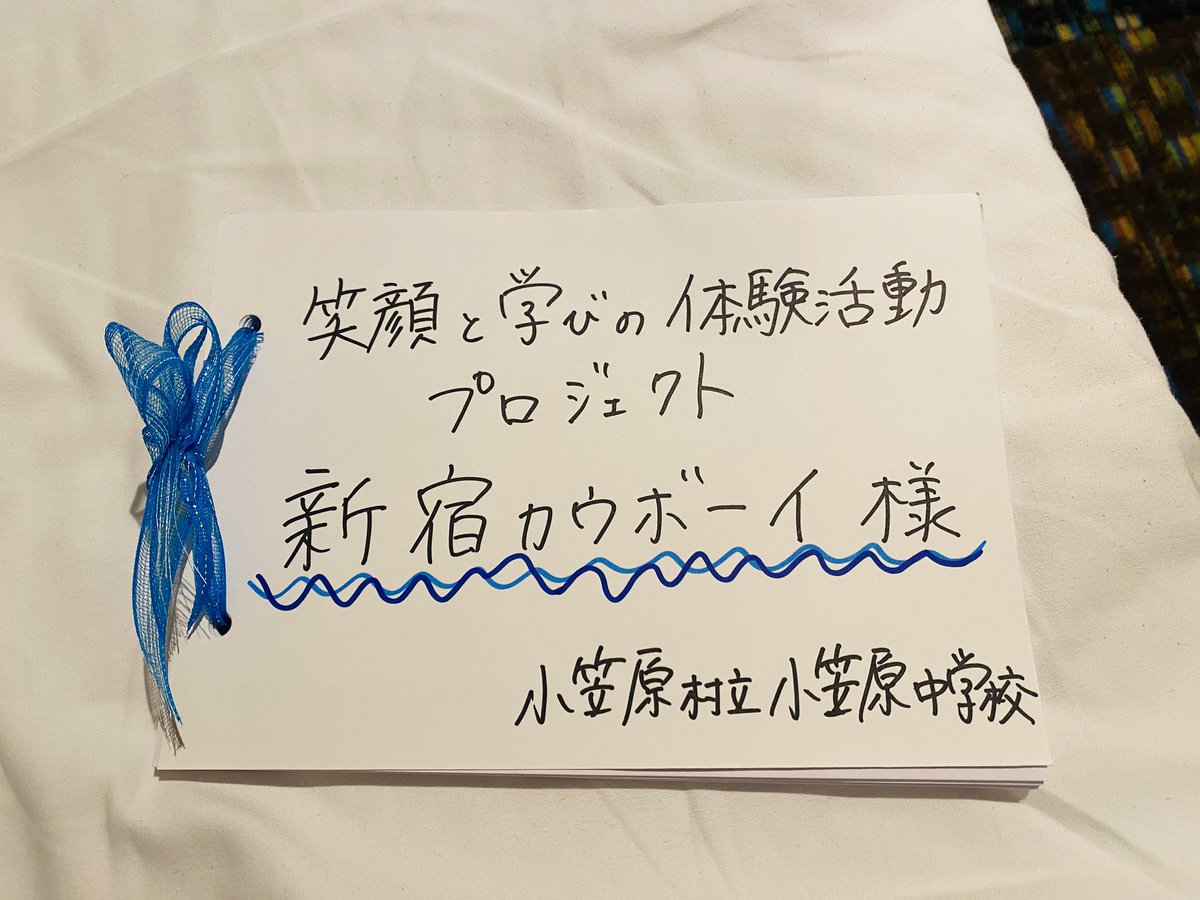 笑顔と学びの体験活動
プロジェクト
新宿カウボーイ様
小笠原村立小笠原中学校